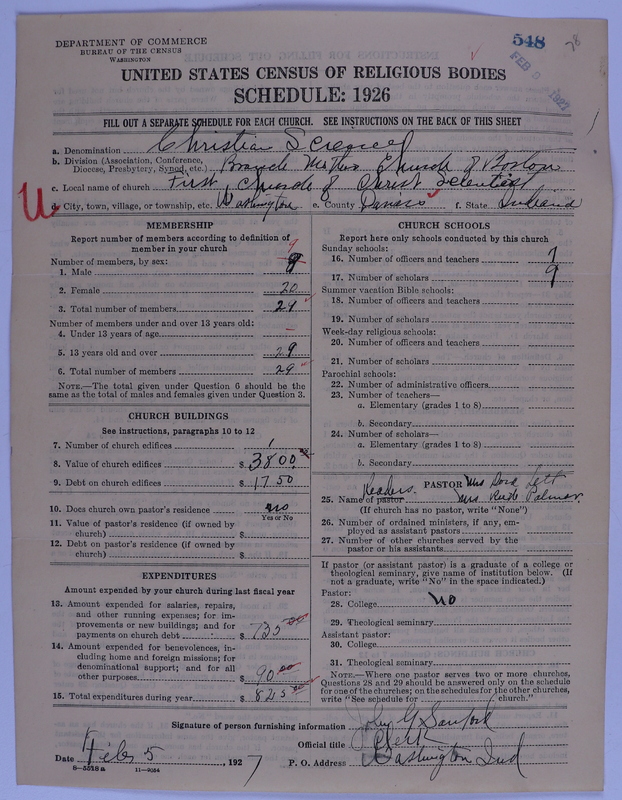 DEPARTMENT OF COMMERCE
BUREAU OF THE CENSUS
WASHINGTON
548
78
FEB 9 1927
UNITED STATES CENSUS OF RELIGIOUS BODIES
SCHEDULE: 1926
FILL OUT A SEPARATE SCHEDULE FOR EACH CHURCH. SEE INSTRUCTIONS ON THE BACK OF THIS SHEET
a. Denomination Christian Science
b. Division (Association, Conference, Diocese, Presbytery, Synod, etc.) Branch Mother Church of Boston
c. Local name of church First Church of Christ Scientist
U
d. City, town, village, or township, etc. Washington e. County Daviess f. State Indiana
MEMBERSHIP
Report number of members according to definition of
member in your church
Number of members, by sex: 9
1. Male
2. Female 20
3. Total number of members 29
Number of members under and over 13 years old:
4. Under 13 years of age –
5. 13 years old and over 29
6. Total number of members 29
NOTE.—The total given under Question 6 should be
same as the total of males and females given under Question 3.
CHURCH BUILDINGS
See instructions, paragraphs 10 to 12
7. Number of church edifices 1
8. Value of church edifices $ 3800
9. Debt on church edifices $ 1750
10. Does church own pastor's residence no
Yes or No
11. Value of pastor's residence (if owned by
church) $
12. Debt on pastor's residence (if owned by
church) $
EXPENDITURES
Amount expended by your church during last fiscal year
13. Amount expended for salaries, repairs,
and other running expenses; for im-
provements or new buildings; and for
payments on church debt $ 735 00
14. Amount expended for benevolences, in-
cluding home and foreign missions; for
denominational support; and for all
other purposes $ 90 00
15. Total expenditures during year $ 825 00
CHURCH SCHOOLS
Report here only schools conducted by this church
Sunday schools:
16. Number of officers and teachers 7
17. Number of scholars 9
Summer vacation Bible schools:
18. Number of officers and teachers
19. Number of scholars
Week-day religious schools:
20. Number of officers and teachers
21. Number of scholars
Parochial schools:
22. Number of administrative officers
23. Number of teachers—
a. Elementary (grades 1 to 8)
b. Secondary
24. Number of scholars—
a. Elementary (grades 1 to 8)
b. Secondary
PASTOR Mrs Dora
25. Name of pastor Readers. Mrs Ruth Palmer
(If church has no pastor, write "None")
26. Number of ordained ministers, if any, em-
ployed as assistant pastors
27. Number of other churches served by the
pastor or his assistants
If pastor (or assistant pastor) is a graduate of a college or
theological seminary, give name of institution below. (If
not a graduate, write "No" in the space indicated.)
Pastor:
28. College no
29. Theological seminary
Assistant pastor:
30. College
31. Theological seminary
NOTE.—Where one pastor serves two or more churches,
Questions 28 and 29 should be answered only on the schedule
for one of the churches; on the schedules for the other churches,
write "See schedule for church."
Signature of person furnishing information G Sanford
Official title Clerk
Date Feb 5, 1927 P. O. Address Washington Ind
8—5518a 11—9034